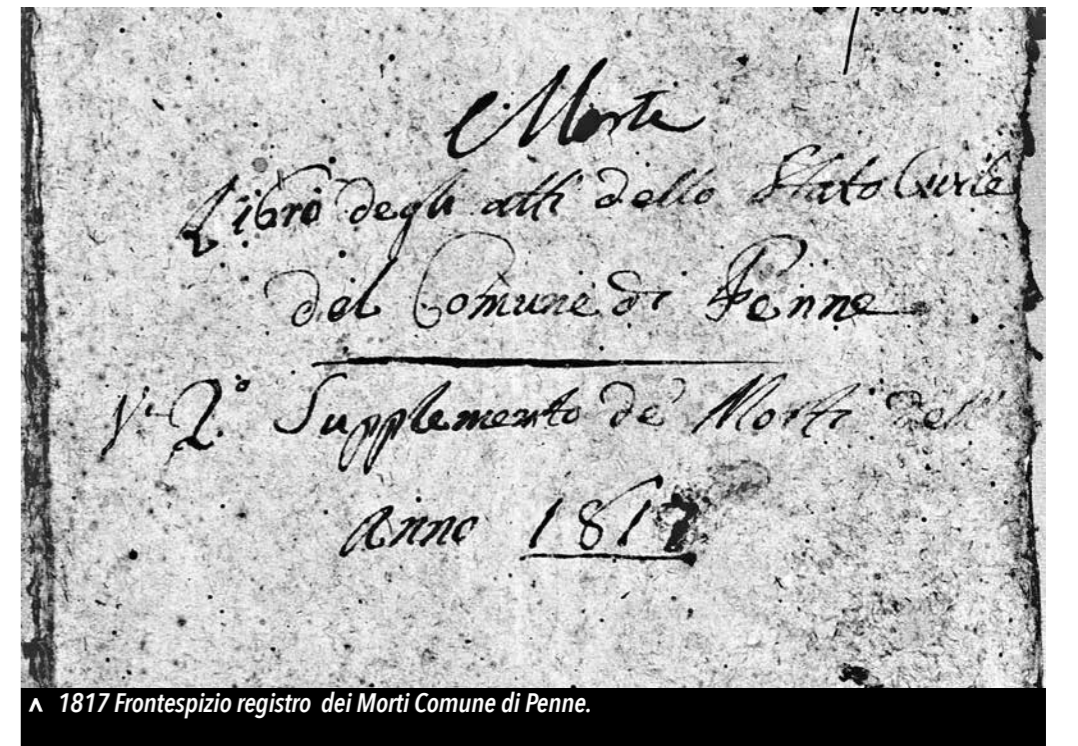 Morti
Libro degli atti dello Stato Civile
del Comune di Penne
N. 2.° Supplemento de' Morti dell'
anno 1817
ʌ 1817 Frontespizio registro dei Morti Comune di Penne.